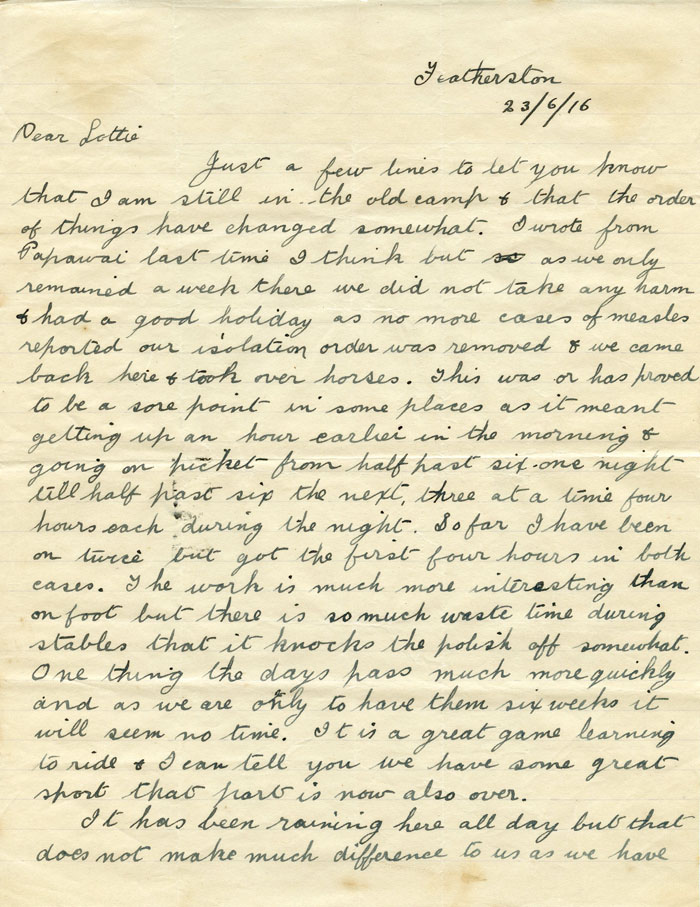 Featherston
23/6/16
Dear Lottie
Just a few lines to let you know
that I am still in the old camp & that the order
of things have changed somewhat. I wrote from
Papawai last time I think but as we only
remained a week there we did not take any harm
& had a good holiday as no more cases of measles
reported our isolation order was removed & we came
back here & took over horses. This was or has proved
to be a sore point in some places as it meant
getting up an hour earlier in the morning &
going on picket from half past six one night
till half past six the next, three at a time four
hours each during the night. So far I have been
on twice but got the first four hours in both
cases. The work is much more interesting than
on foot but there is so much waste time during
stables that it knocks the polish off somewhat.
One thing the days pass much more quickly
and as we are only to have them six weeks it
will seem no time. It is a great game learning
to ride & I can tell you we have some great
sport that part is now also over.
It has been raining here all day but that
does not make much difference to us as we have